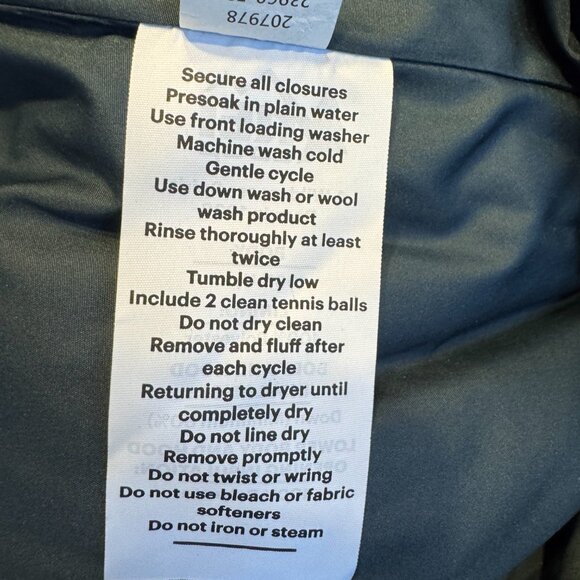 207978
Secure all closures
Presoak in plain water
Use front loading washer
Machine wash cold
Gentle cycle
Use down wash or wool
wash product
Rinse thoroughly at least
twice
Tumble dry low
Include 2 clean tennis balls
Do not dry clean
Remove and fluff after
each cycle
Returning to dryer until
completely dry
Do not line dry
Remove promptly
Do not twist or wring
Do not use bleach or fabric
softeners
Do not iron or steam